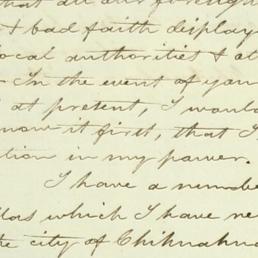 that all our foreign
& bad faith display
local authorities & at
In the event of you
at present, I would
now it first, that I
tion in my power.
I have a numbe
llas which I have re
the city of Chihuahua